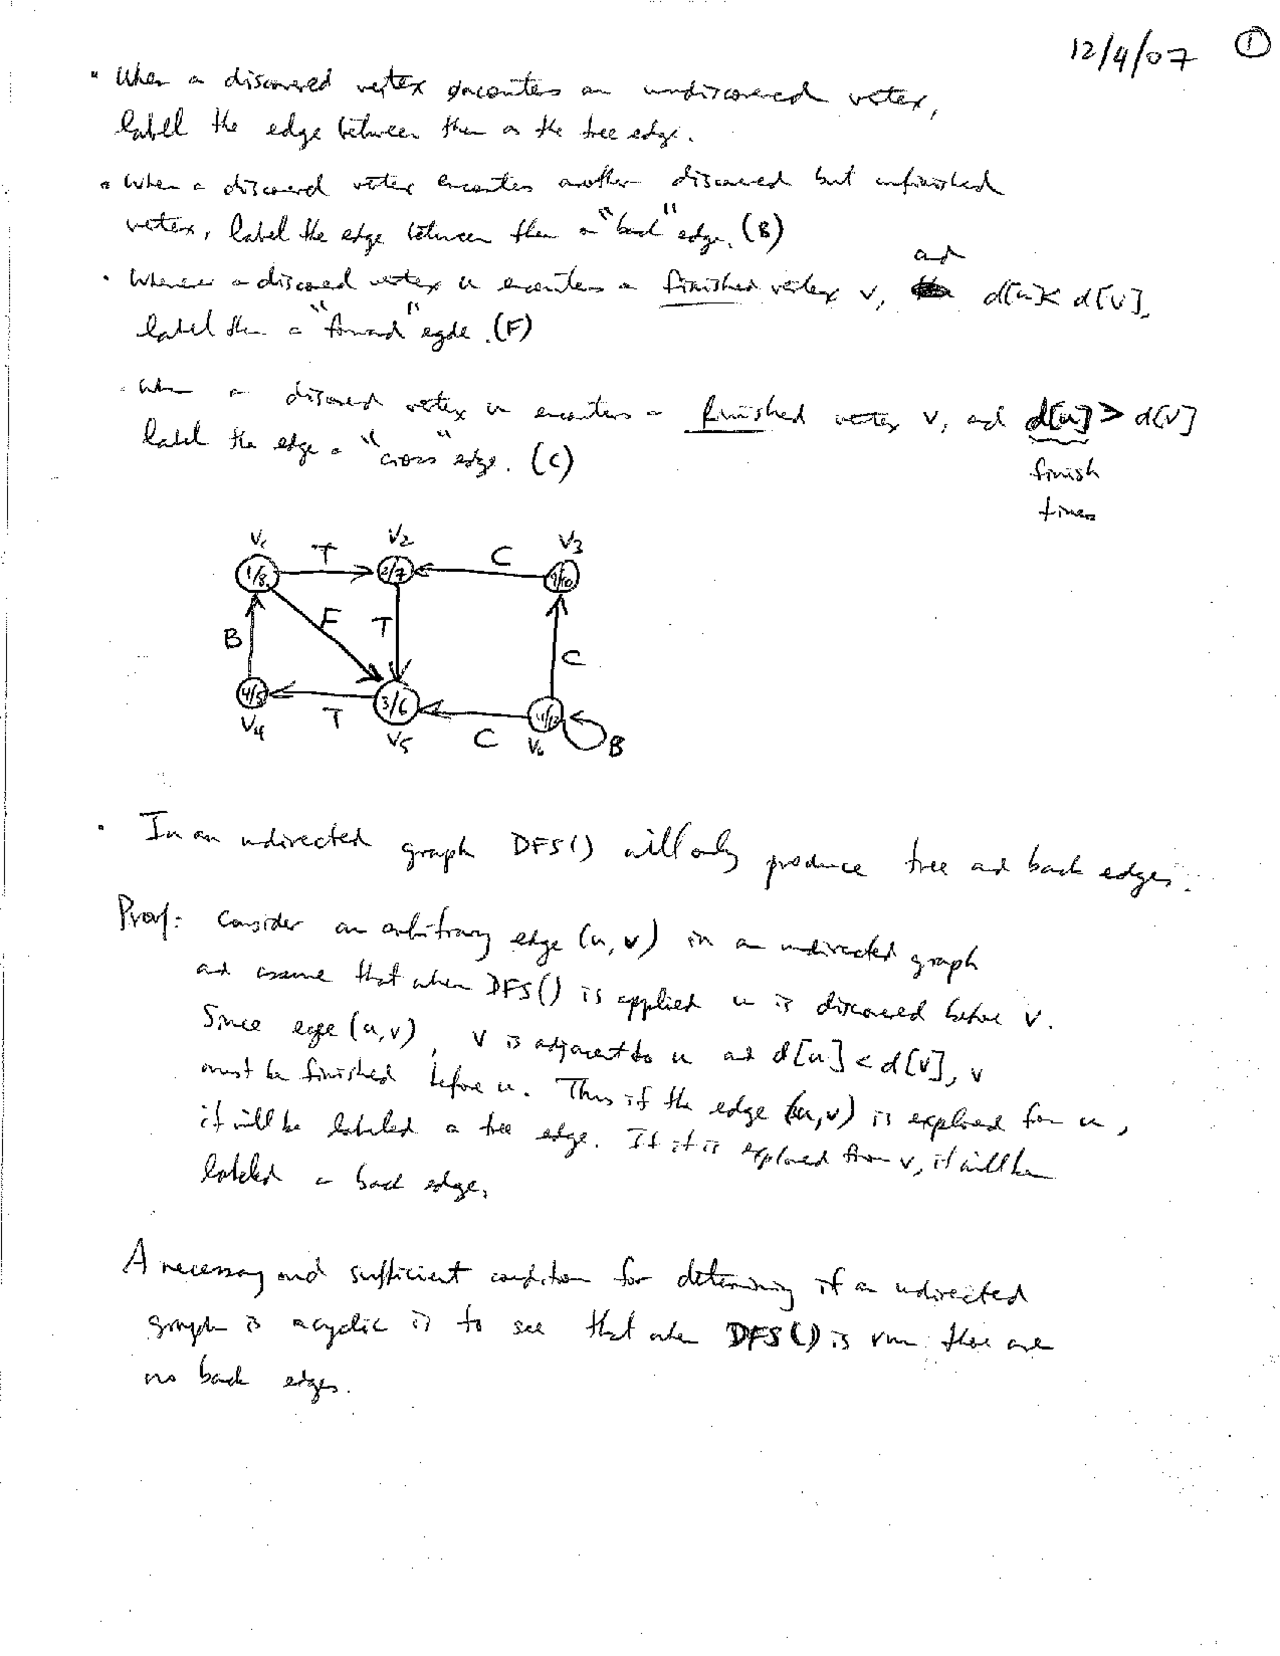 12/4/07 ①
• When a discovered vertex encounters an undiscovered vertex,
label the edge between them as the tree edge.
• When a discovered vertex encounters another discovered but unfinished
vertex, label the edge between them a "back" edge. (B)
and
• Whenever a discovered vertex u encounters a finished vertex v, d[u] < d[v],
label them a "forward" egde. (F)
• When a discovered vertex u encounters a finished vertex v, and d[u] > d[v]
label the edge a "cross" edge. (C)
finish
times
V1 T V2 C V3
1/8 2/7 9/10
B F T C
4/5 3/6 11/12
V4 T V5 C V6 B
• In an undirected graph DFS() will only produce tree and back edges.
Proof: Consider an arbitrary edge (u,v) in an undirected graph
and assume that when DFS() is applied u is discovered before v.
Since edge (u,v), v is adjacent to u and d[u] < d[v], v
must be finished before u. Thus if the edge (u,v) is explored from u,
it will be labeled a tree edge. If it is explored from v, it will be
labeled a back edge.
A necessary and sufficient condition for determining if an undirected
graph is acyclic is to see that when DFS() is run there are
no back edges.